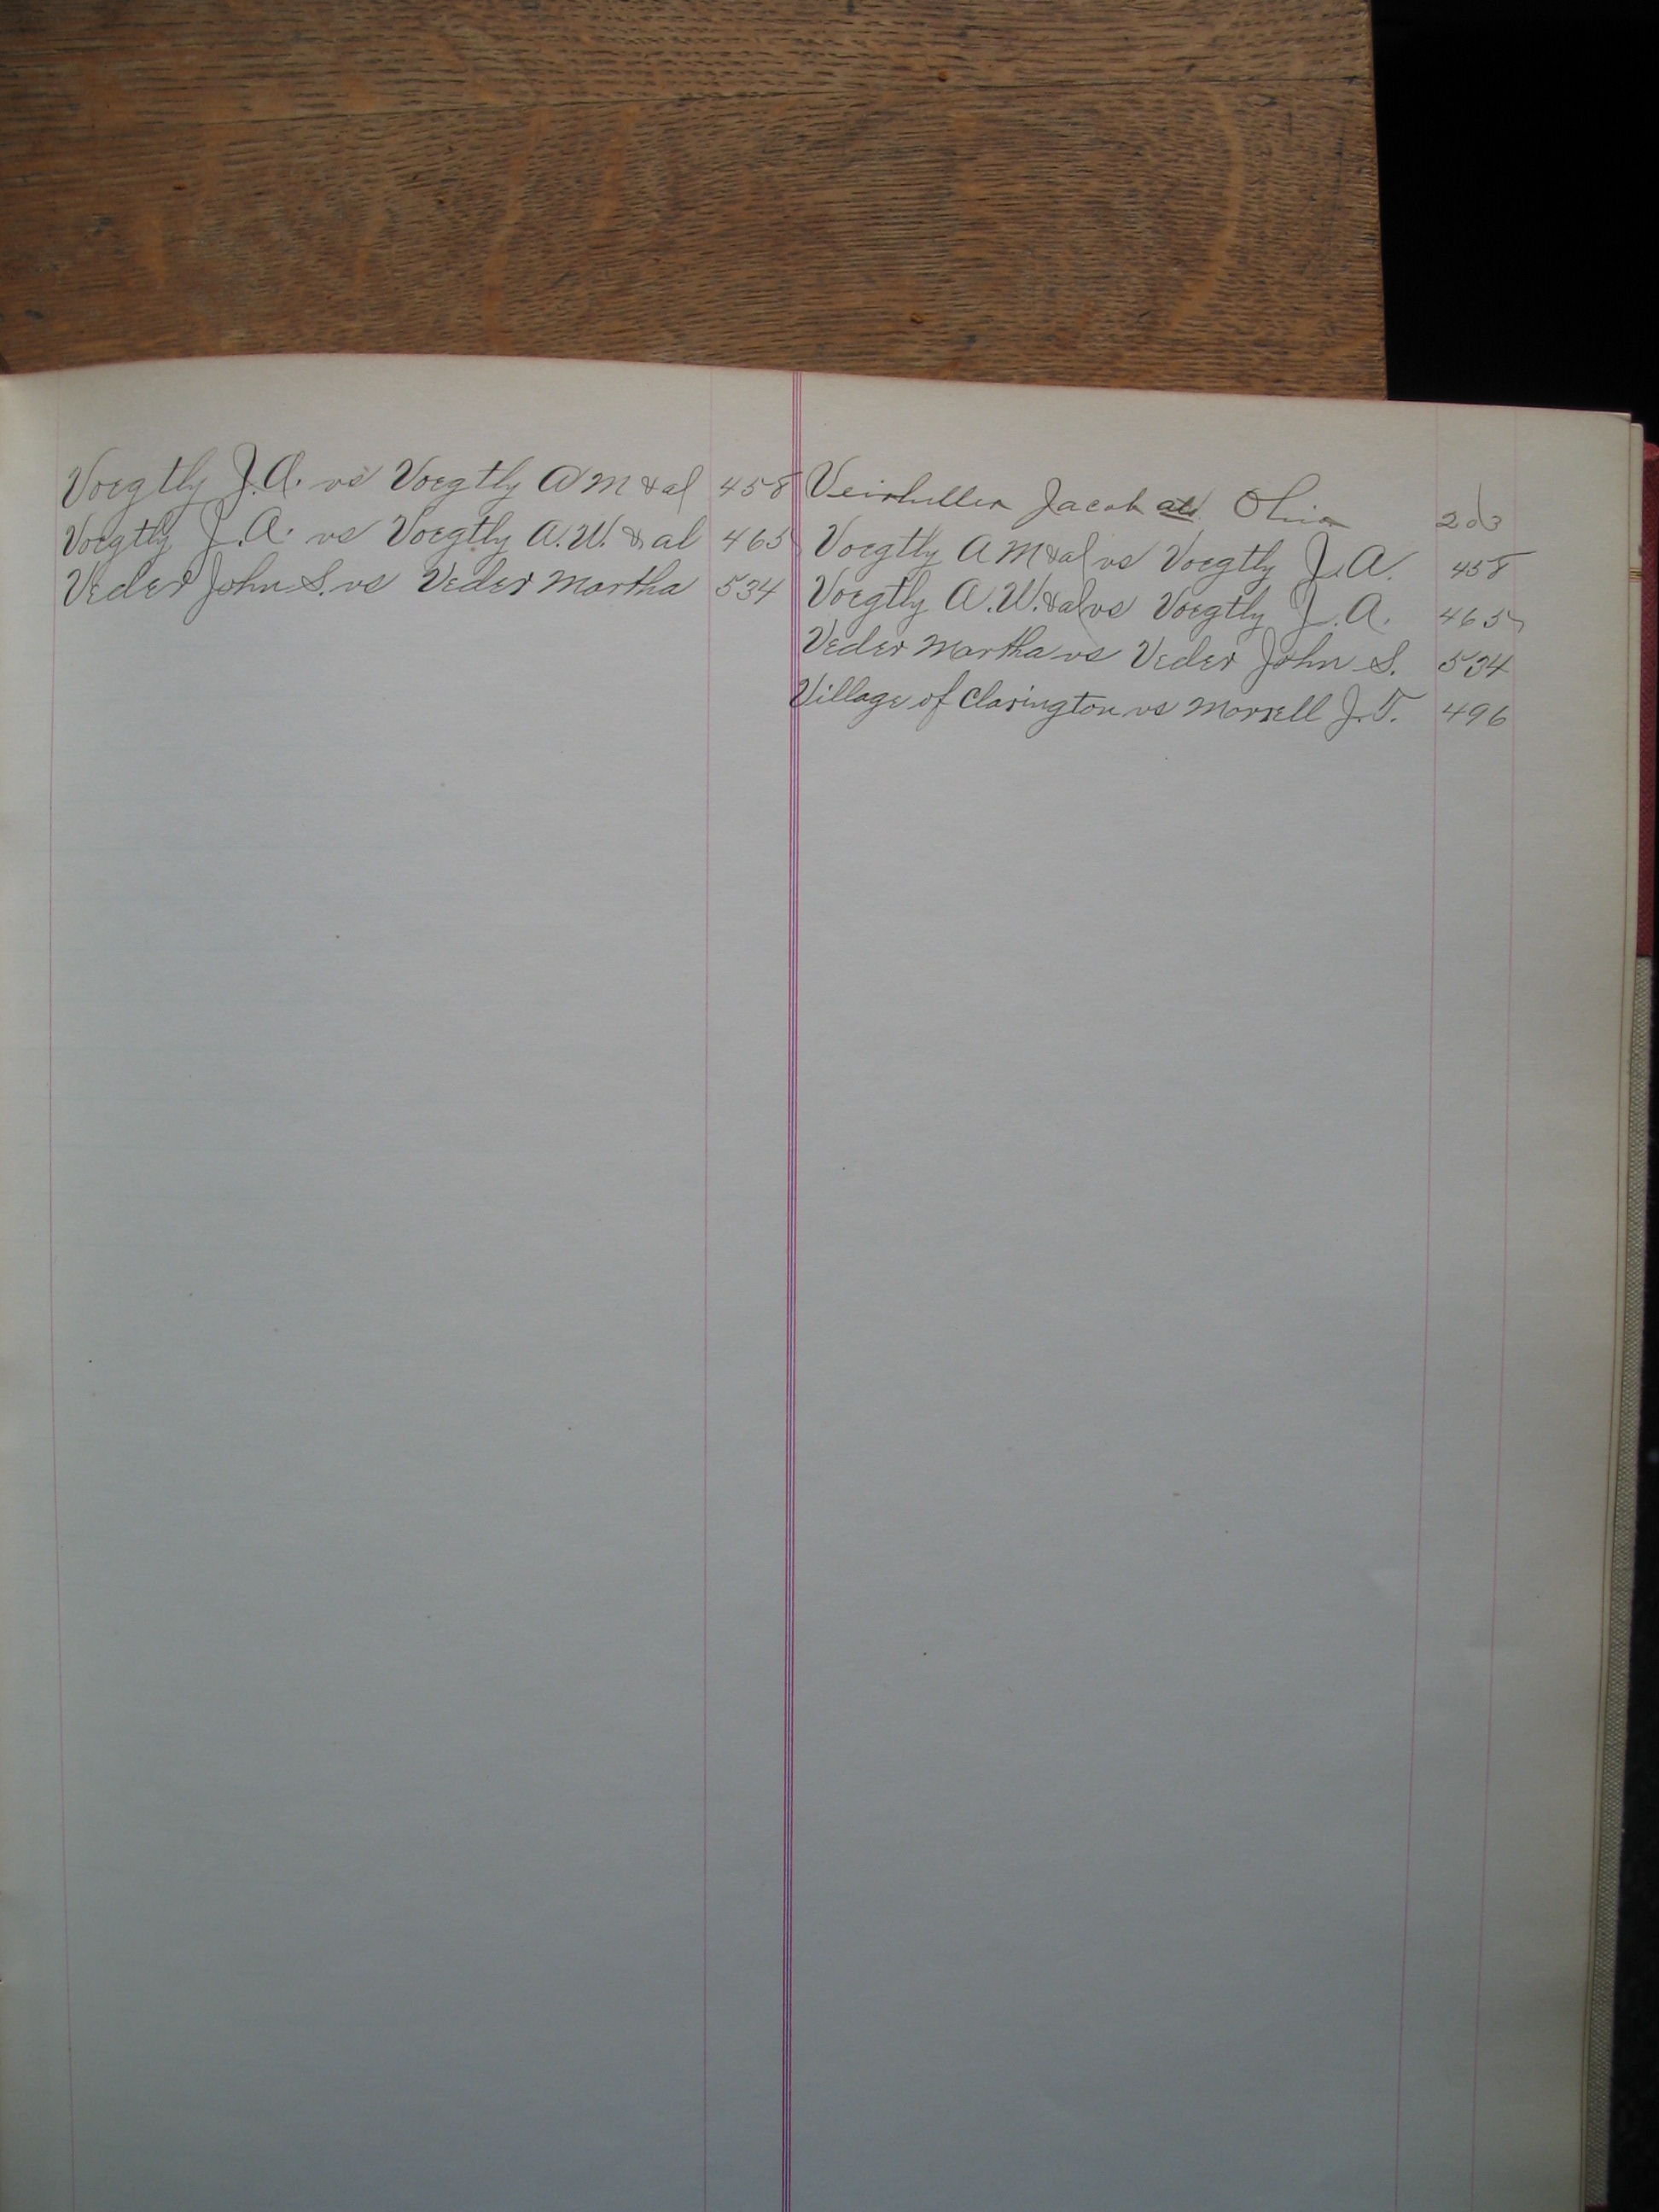 Voegtly J.A. vs Voegtly A M & al 458
Voegtly J.A. vs Voegtly A.W. & al 465
Veder John S. vs Veder Martha 534
Jacob ats Ohio
Voegtly A M & al vs Voegtly J.A. 458
Voegtly A.W. & al vs Voegtly J.A. 465
Veder Martha vs Veder John S. 534
Village of Clarington vs Morrell J.T. 496